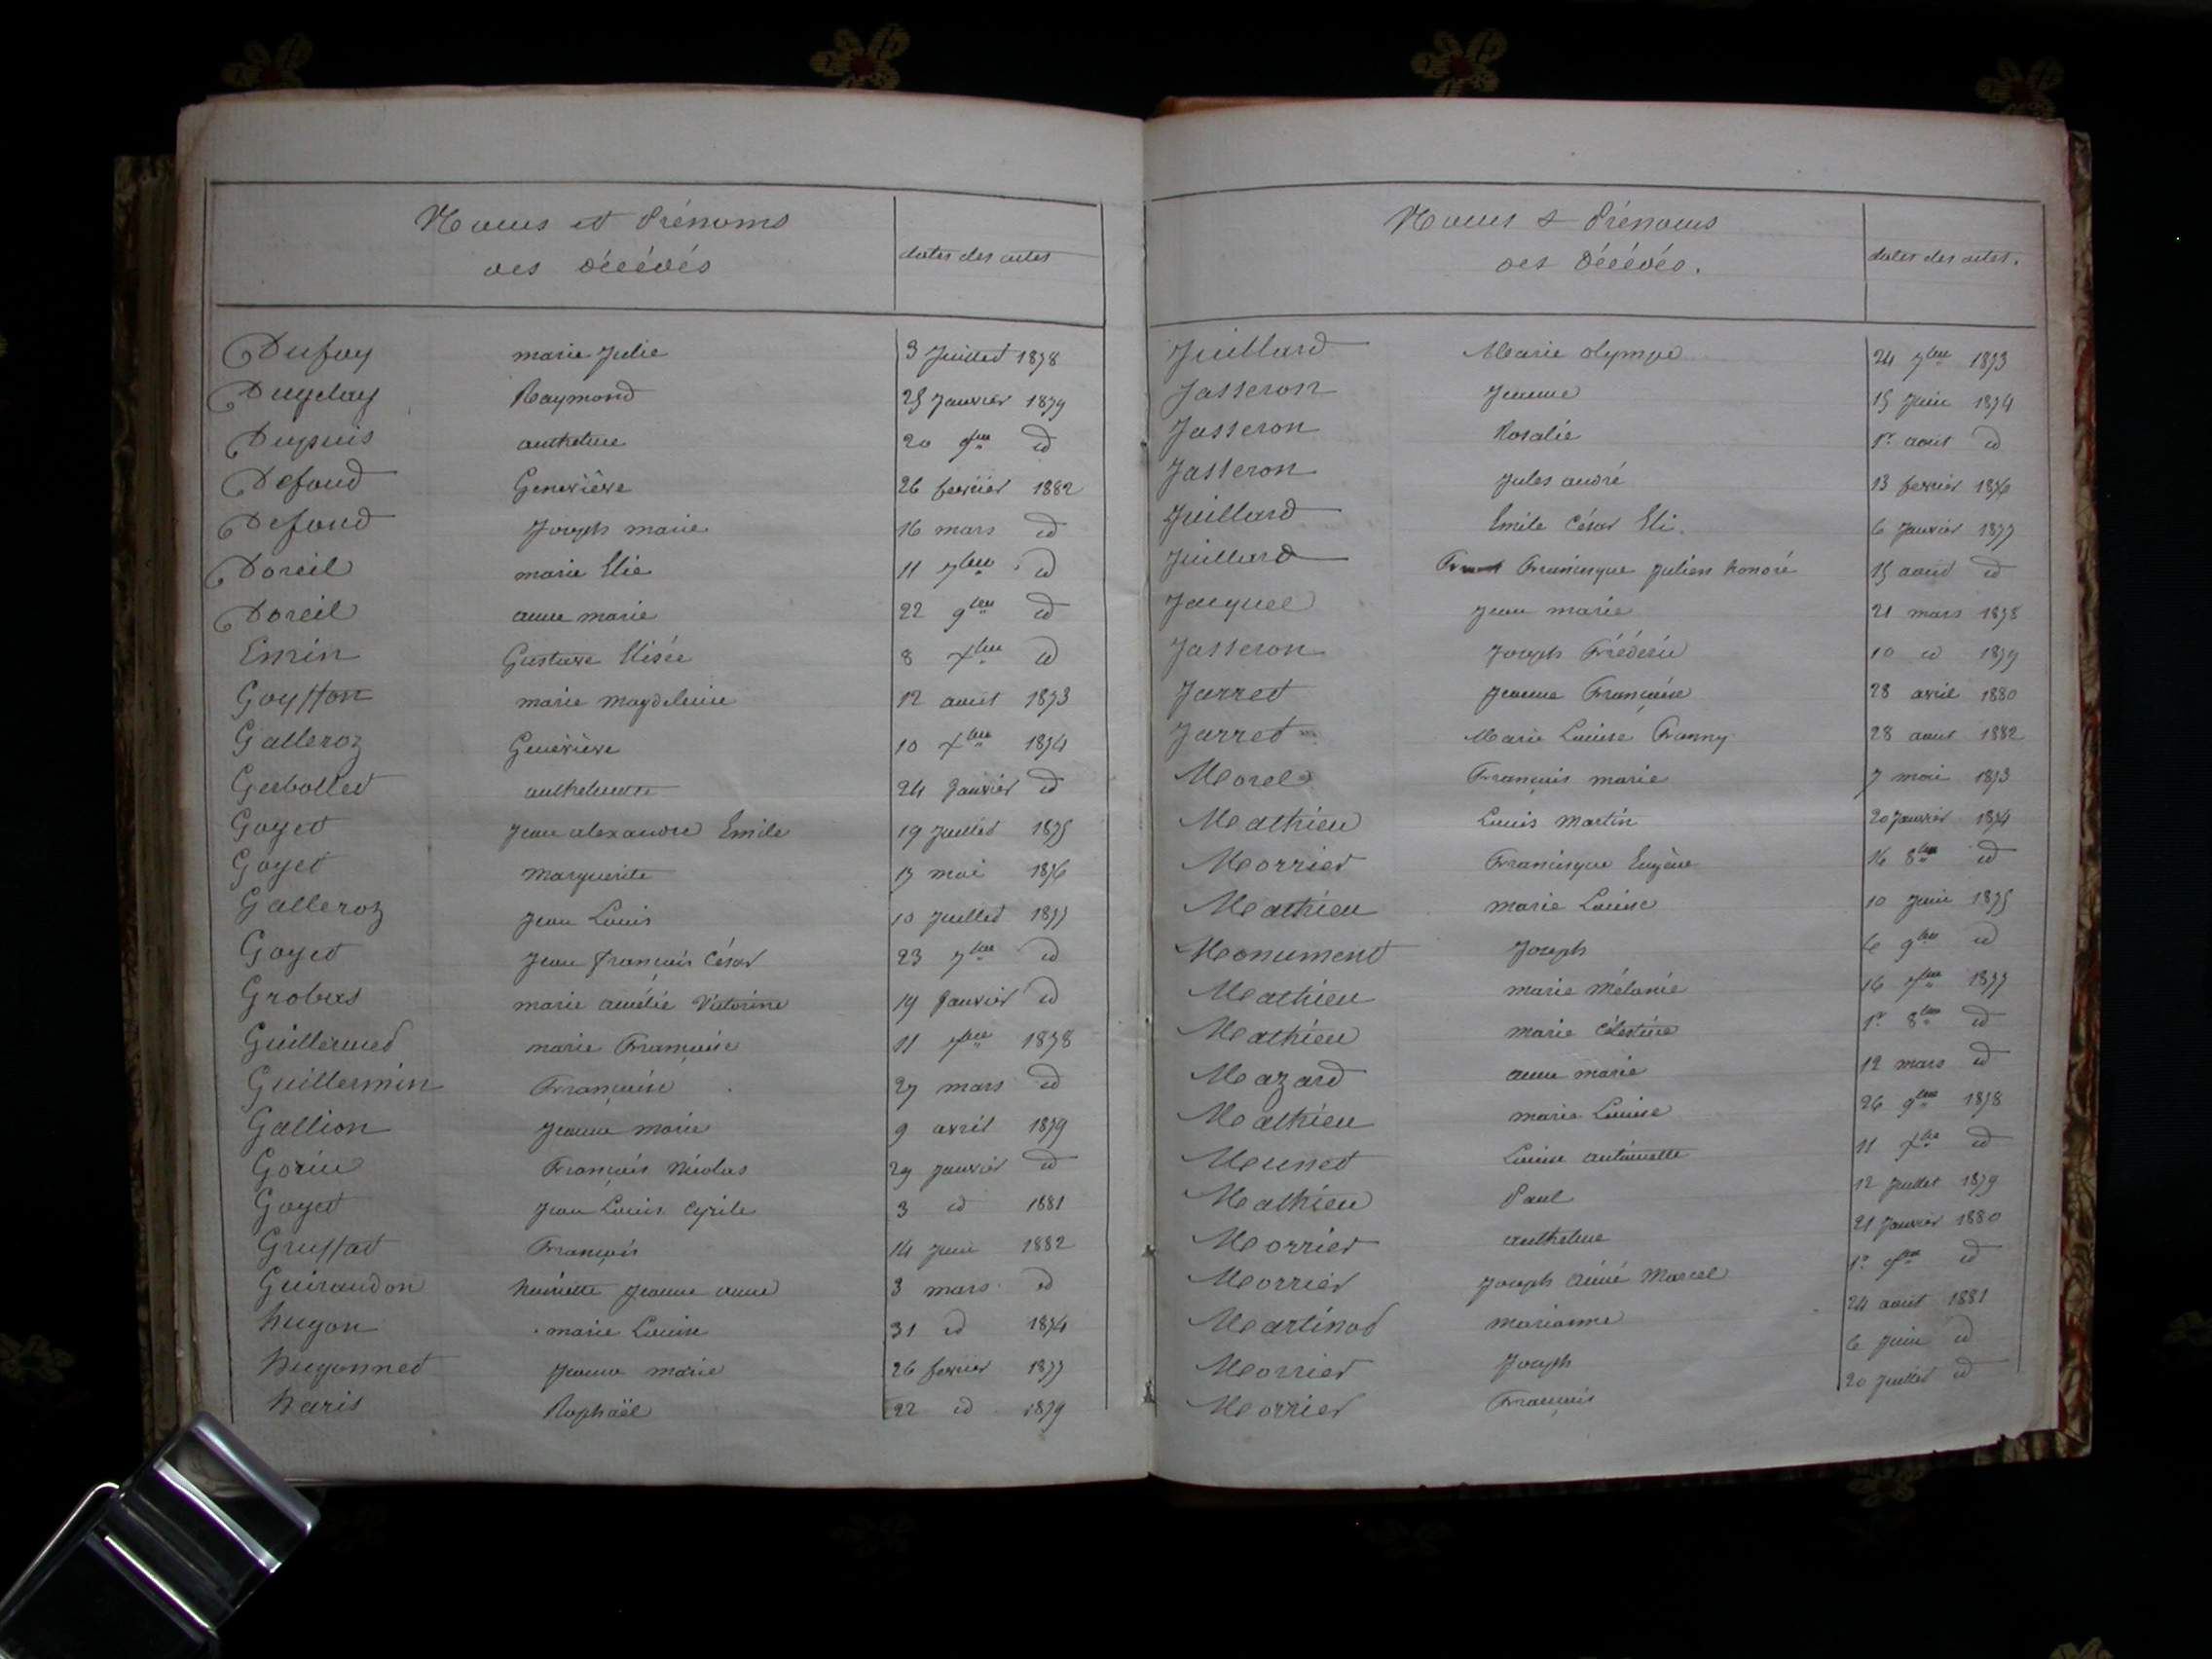 Noms et Prénoms
des Décédés
dates des actes
Dufay marie Julie 3 Juillet 1878
Duyclay Raymond 25 Janvier 1879
Dupuis anthelme 20 9bre id
Defond Geneviève 26 fevrier 1882
Defond Joseph marie 16 mars id
Doreil marie Elie 11 7bre id
Doreil anne marie 22 9bre id
Emin Gustave Elisée 8 Xbre id
Goyffon marie Magdeleine 12 aout 1873
Galleroz Geneviève 10 Xbre 1874
Gerbollet anthelmette 24 Janvier id
Goyet Jean alexandre Emile 19 Juillet 1875
Goyet Marguerite 15 mai 1876
Galleroz Jean Louis 10 Juillet 1877
Goyet Jean françois César 23 7bre id
Grobas marie amélie Victorine 19 Janvier id
Guillermet marie Françoise 11 7bre 1878
Guillermin Françoise 27 mars id
Gallion Jeanne marie 9 avril 1879
Gorin François Nicolas 29 Janvier id
Goyet Jean Louis Cyrile 3 id 1881
Gruffat François 14 Juin 1882
Guiraudon henriette Jeanne anne 3 mars id
hugon marie Louise 31 id 1874
hugonnet Jeanne marie 26 fevrier 1877
haris Raphaël 22 id 1879
Noms & Prénoms
des Décédés.
dates des actes.
Juillard Marie olympe 24 7bre 1873
Jasseron Jeanne 15 Juin 1874
Jasseron Rosalie 1er aout id
Jasseron Jules andré 13 fevrier 1876
Juillard Emile César Eli. 6 Janvier 1877
Juillard Francisque Julien honoré 15 aout id
Jacquel Jean marie 21 mars 1878
Jasseron Joseph Frédéric 10 id 1879
Jarret Jeanne Françoise 28 avril 1880
Jarret Marie Louise Franny 28 aout 1882
Morel François marie 7 mai 1873
Mathieu Louis Martin 20 Janvier 1874
Morrier Francisque Eugène 16 8bre id
Mathieu marie Louise 10 Juin 1875
Monument Joseph 6 9bre id
Mathieu marie Mélanie 16 7bre 1877
Mathieu marie Célestine 1er 8bre id
Mazard anne marie 12 mars id
Mathieu marie Louise 26 9bre 1878
Meunet Louise antoinette 11 Xbre id
Mathieu Paul 12 Juillet 1879
Morrier anthelme 21 Janvier 1880
Morrier Joseph aimé Marcel 1er 9bre id
Martinod marianne 24 aout 1881
Morrier Joseph 6 Juin id
Morrier François 20 Juillet id